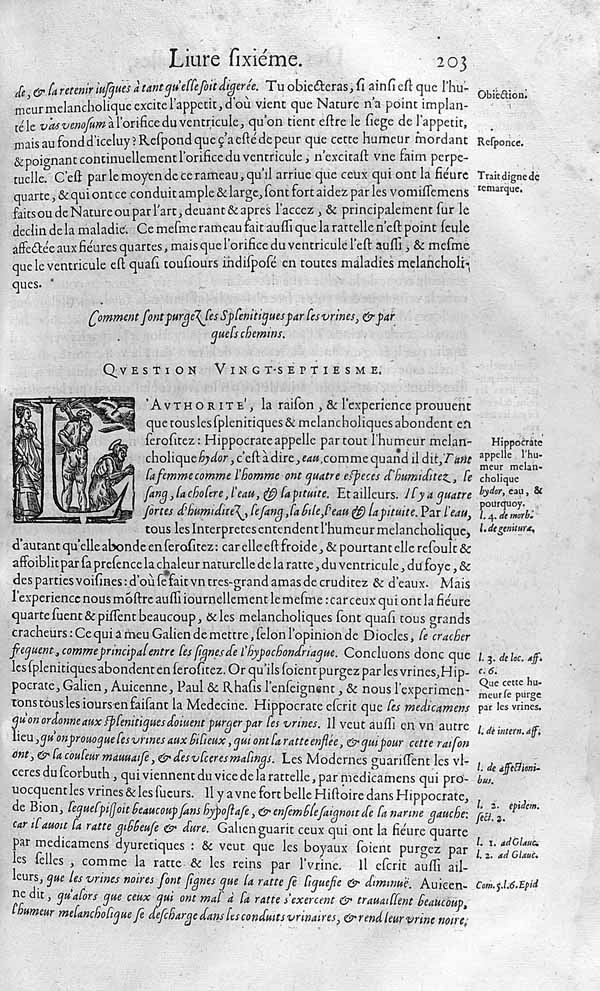 Liure sixiéme. 203
de, & la retenir iusques à tant qu'elle soit digerée. Tu obiecteras, si ainsi est que l'hu-
meur melancholique excite l'appetit, d'où vient que Nature n'a point implan-
té le vas venosum à l'orifice du ventricule, qu'on tient estre le siege de l'appetit,
mais au fond d'iceluy? Respond que ç'a esté de peur que cette humeur mordant
& poignant continuellement l'orifice du ventricule, n'excitast vne faim perpe-
tuelle. C'est par le moyen de ce rameau, qu'il arriue que ceux qui ont la fiéure
quarte, & qui ont ce conduit ample & large, sont fort aidez par les vomissemens
faits ou de Nature ou par l'art, deuant & apres l'accez, & principalement sur le
declin de la maladie. Ce mesme rameau fait aussi que la rattelle n'est point seule
affectée aux fiéures quartes, mais que l'orifice du ventricule l'est aussi, & mesme
que le ventricule est quasi tousiours indisposé en toutes maladies melancholi-
ques.
Obiection.
Responce.
Trait digne de
remarque.
Comment sont purgez les Splenitiques par les vrines, & par
quels chemins.
QVESTION VINGT-SEPTIESME.
L'AVTHORITE', la raison, & l'experience prouuent
que tous les splenitiques & melancholiques abondent en
serositez: Hippocrate appelle par tout l'humeur melan-
cholique hydor, c'est à dire, eau, comme quand il dit, Tant
la femme comme l'homme ont quatre especes d'humiditez, le
sang, la cholere, l'eau, & la pituite. Et ailleurs. Il y a quatre
sortes d'humiditez, le sang, la bile, l'eau & la pituite. Par l'eau,
tous les Interpretes entendent l'humeur melancholique,
d'autant qu'elle abonde en serositez: car elle est froide, & pourtant elle resoult &
affoiblit par sa presence la chaleur naturelle de la ratte, du ventricule, du foye, &
des parties voisines: d'où se fait vn tres-grand amas de cruditez & d'eaux. Mais
l'experience nous mõstre aussi iournellement le mesme: car ceux qui ont la fiéure
quarte suent & pissent beaucoup, & les melancholiques sont quasi tous grands
cracheurs: Ce qui a meu Galien de mettre, selon l'opinion de Diocles, le cracher
frequent, comme principal entre les signes de l'hypochondriaque. Concluons donc que
les splenitiques abondent en serositez. Or qu'ils soient purgez par les vrines, Hip-
pocrate, Galien, Auicenne, Paul & Rhasis l'enseignent, & nous l'experimen-
tons tous les iours en faisant la Medecine. Hippocrate escrit que les medicamens
qu'on ordonne aux splenitiques doiuent purger par les vrines. Il veut aussi en vn autre
lieu, qu'on prouoque les vrines aux bilieux, qui ont la ratte enflée, & qui pour cette raison
ont, & la couleur mauuaise, & des vlceres malings. Les Modernes guarissent les vl-
ceres du scorbuth, qui viennent du vice de la rattelle, par medicamens qui pro-
uocquent les vrines & les sueurs. Il y a vne fort belle Histoire dans Hippocrate,
de Bion, lequel pissoit beaucoup sans hypostase, & ensemble saignoit de la narine gauche:
car il auoit la ratte gibbeuse & dure. Galien guarit ceux qui ont la fiéure quarte
par medicamens dyuretiques: & veut que les boyaux soient purgez par
les selles, comme la ratte & les reins par l'vrine. Il escrit aussi ail-
leurs, que les vrines noires sont signes que la ratte se liquefie & diminuë. Auicen-
ne dit, qu'alors que ceux qui ont mal à la ratte s'exercent & trauaillent beaucoup,
l'humeur melancholique se descharge dans les conduits vrinaires, & rend leur vrine noire,
Hippocrate
appelle l'hu-
meur melan-
cholique
hydor, eau, &
pourquoy.
l. 4. de morb.
l. de genitura.
l. 3. de loc. aff.
c. 6.
Que cette hu-
meur se purge
par les vrines.
l. de intern. aff.
l. de affectioni-
bus.
l. 2. epidem.
sect. 2.
l. 1. ad Glauc.
l. 2. ad Glauc.
Com. 5. l. 6. Epid